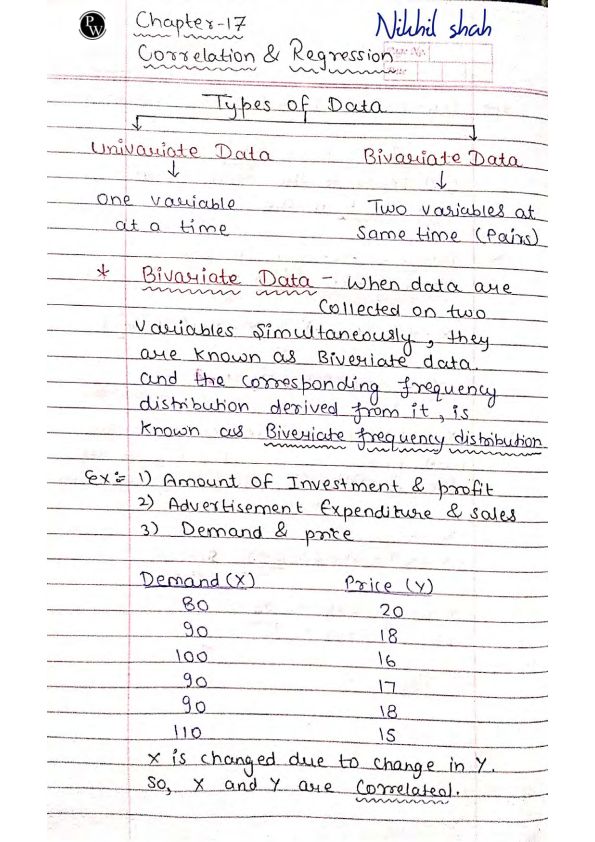 PW
Chapter-17
Nikhil shah
Correlation & Regression
Types of Data
Univariate Data Bivariate Data
one variable Two variables at
at a time same time (Pairs)
* Bivariate Data - When data are
Collected on two
variables Simultaneously, they
are known as Biveriate data.
and the corresponding frequency
distribution derived from it, is
known as Biveriate frequency distribution
Ex:- 1) Amount of Investment & profit
2) Advertisement Expenditure & sales
3) Demand & price
Demand (X) Price (Y)
80 20
90 18
100 16
90 17
90 18
110 15
X is changed due to change in Y.
So, X and Y are Correlated.